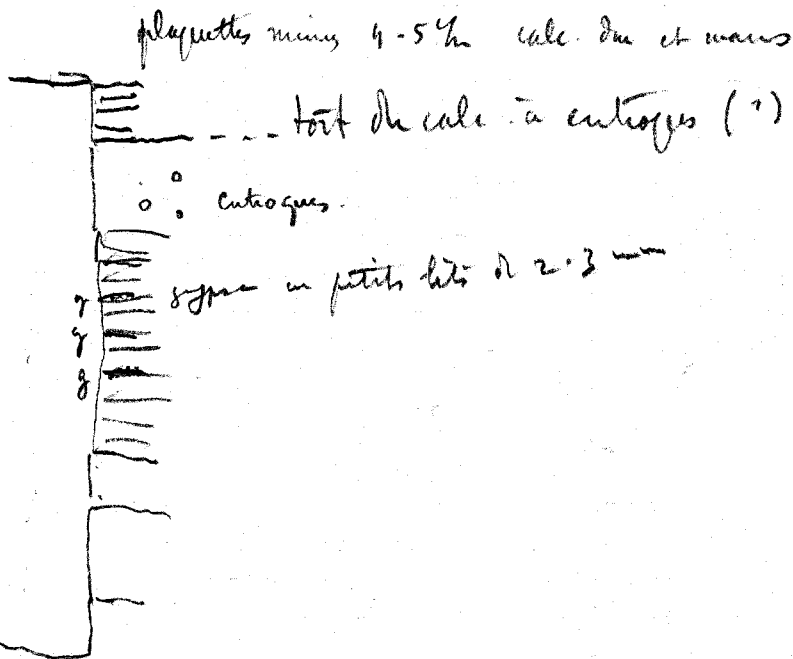 plaquettes minces 4-5 c/m calc. dur et marnes
toit du calc. à entroques (1)
entroques.
gypse en petits lits de 2-3 mm
g
g
g